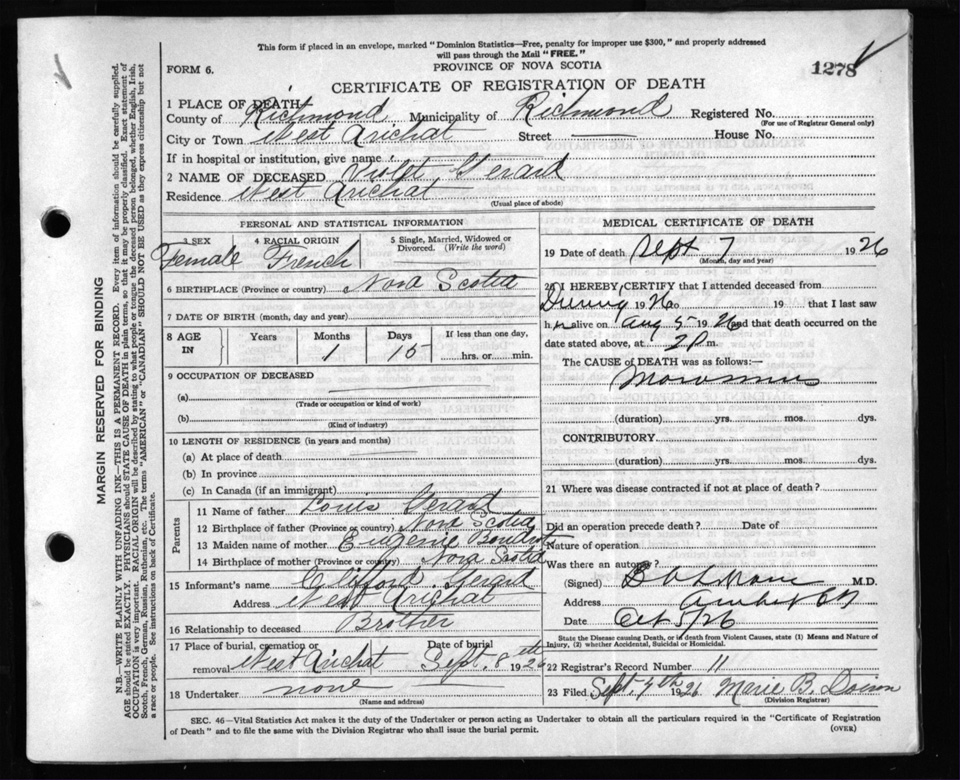 This form if placed in an envelope, marked "Dominion Statistics—Free, penalty for improper use $300," and properly addressed
will pass through the Mail "FREE."
FORM 6.
PROVINCE OF NOVA SCOTIA
1278
CERTIFICATE OF REGISTRATION OF DEATH
1 PLACE OF DEATH
County of Richmond Municipality of Richmond Registered No.
(For use of Registrar General only)
City or Town West Arichat Street House No.
If in hospital or institution, give name
2 NAME OF DECEASED Violet Gerard
Residence West Arichat
(Usual place of abode)
PERSONAL AND STATISTICAL INFORMATION
3 SEX 4 RACIAL ORIGIN 5 Single, Married, Widowed or
Divorced. (Write the word)
Female French
6 BIRTHPLACE (Province or country) Nova Scotia
7 DATE OF BIRTH (month, day and year)
8 AGE IN Years Months Days If less than one day,
1 15 hrs. or min.
9 OCCUPATION OF DECEASED
(a)
(Trade or occupation or kind of work)
(b)
(Kind of industry)
10 LENGTH OF RESIDENCE (in years and months)
(a) At place of death
(b) In province
(c) In Canada (if an immigrant)
Parents
11 Name of father Louis Gerard
12 Birthplace of father (Province or country) Nova Scotia
13 Maiden name of mother Eugenie Boudrot
14 Birthplace of mother (Province or country) Nova Scotia
15 Informant's name Clifford Gerard
Address West Arichat
16 Relationship to deceased Brother
17 Place of burial, cremation or removal West Arichat Date of burial Sept. 8th 1926
18 Undertaker none
(Name and address)
MEDICAL CERTIFICATE OF DEATH
19 Date of death Sept 7 1926
(Month, day and year)
20 I HEREBY CERTIFY that I attended deceased from
During 1926 to 19 that I last saw
h alive on Aug 5 1926 and that death occurred on
date stated above, at 2 P m.
The CAUSE of DEATH was as follows:—
(duration) yrs. mos. dys.
CONTRIBUTORY
(duration) yrs. mos. dys.
21 Where was disease contracted if not at place of death?
Did an operation precede death? Date of
Nature of operation
Was there an autopsy?
(Signed) M.D.
Address
Date Oct 5/26
State the Disease causing Death, or, in death from Violent Causes, state (1) Means and Nature of
Injury, (2) whether Accidental, Suicidal or Homicidal.
22 Registrar's Record Number 11
23 Filed Sept. 7th 1926 Marie B. Doiron
(Division Registrar)
SEC. 46—Vital Statistics Act makes it the duty of the Undertaker or person acting as Undertaker to obtain all the particulars required in the "Certificate of Registration
of Death" and to file the same with the Division Registrar who shall issue the burial permit.
(OVER)
MARGIN RESERVED FOR BINDING
N.B.—WRITE PLAINLY WITH UNFADING INK—THIS IS A PERMANENT RECORD. Every item of information should be carefully supplied.
AGE should be stated EXACTLY. PHYSICIANS should STATE CAUSE OF DEATH in plain terms, so that it may be properly classified. Exact statement of
OCCUPATION is very important. RACIAL ORIGIN will be described by stating to what people or tongue the deceased person belonged, whether English, Irish,
Scotch, French, German, Russian, Ruthenian, etc. The terms "AMERICAN" or "CANADIAN" SHOULD NOT BE USED as they express citizenship but not
a race or people. See instructions on back of Certificate.